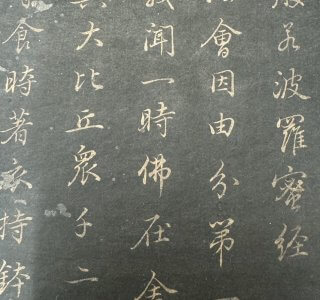 般若波羅蜜经
會因由分第
我聞一時佛在舍
大比丘衆千二
食時著衣持鉢